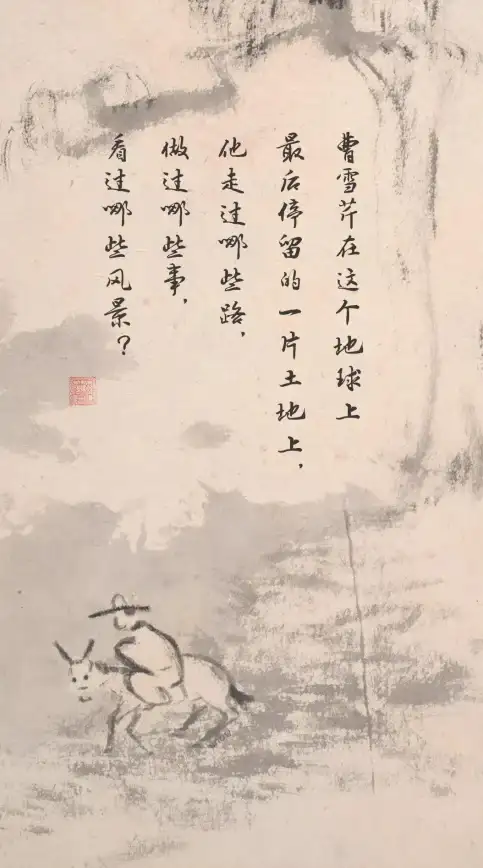 曹雪芹在这个地球上
最后停留的一片土地上，
他走过哪些路，
做过哪些事，
看过哪些风景？